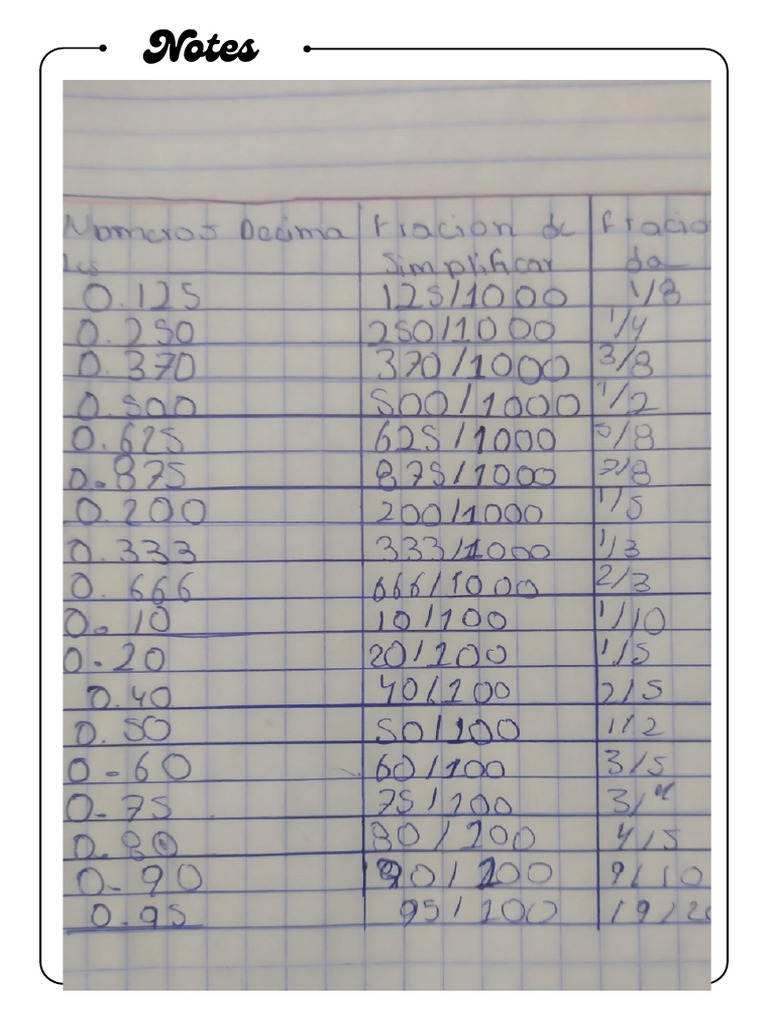 Notes
Numeros Decima Fracion de Fracio
les Simplificar da
0.125 125/1000 1/8
0.250 250/1000 1/4
0.370 370/1000 3/8
0.500 500/1000 1/2
0.625 625/1000 5/8
0.875 875/1000 7/8
0.200 200/1000 1/5
0.333 333/1000 1/3
0.666 666/1000 2/3
0.10 10/100 1/10
0.20 20/100 1/5
0.40 40/100 2/5
0.50 50/100 1/2
0-60 60/100 3/5
0.75 75/100 3/4
0.80 80/100 4/5
0.90 90/100 9/10
0.95 95/100 19/20